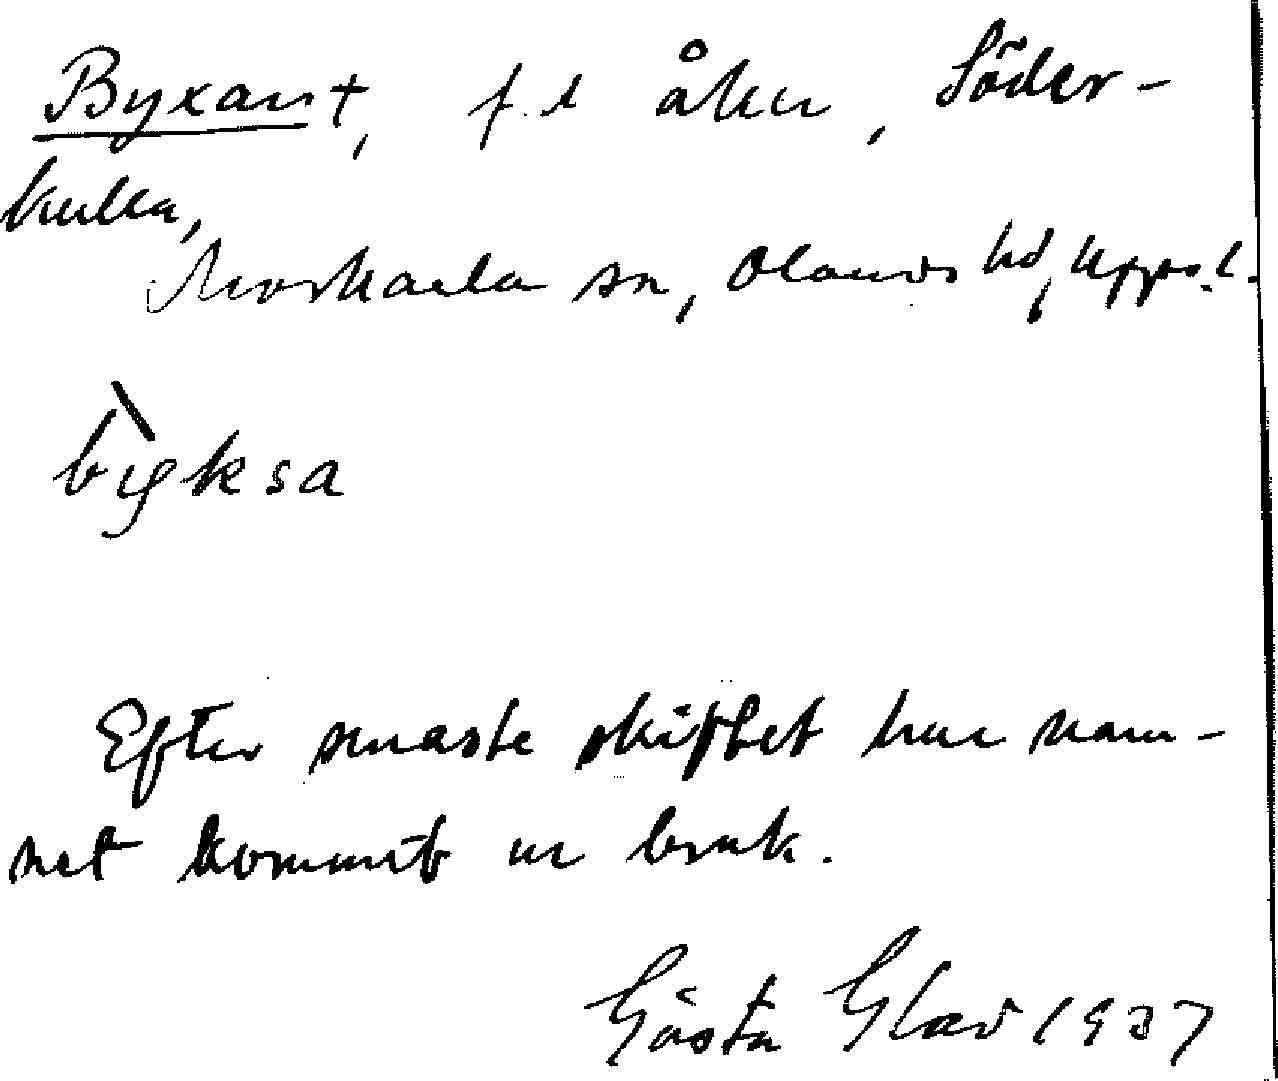 Byxan†, f.d åker, Söder-
kulla,
Morkarla sn, Olands hd, Uppsl.
bỳksa
Efter senaste skiftet har nam-
net kommit ur bruk.
Gösta Glav 1937